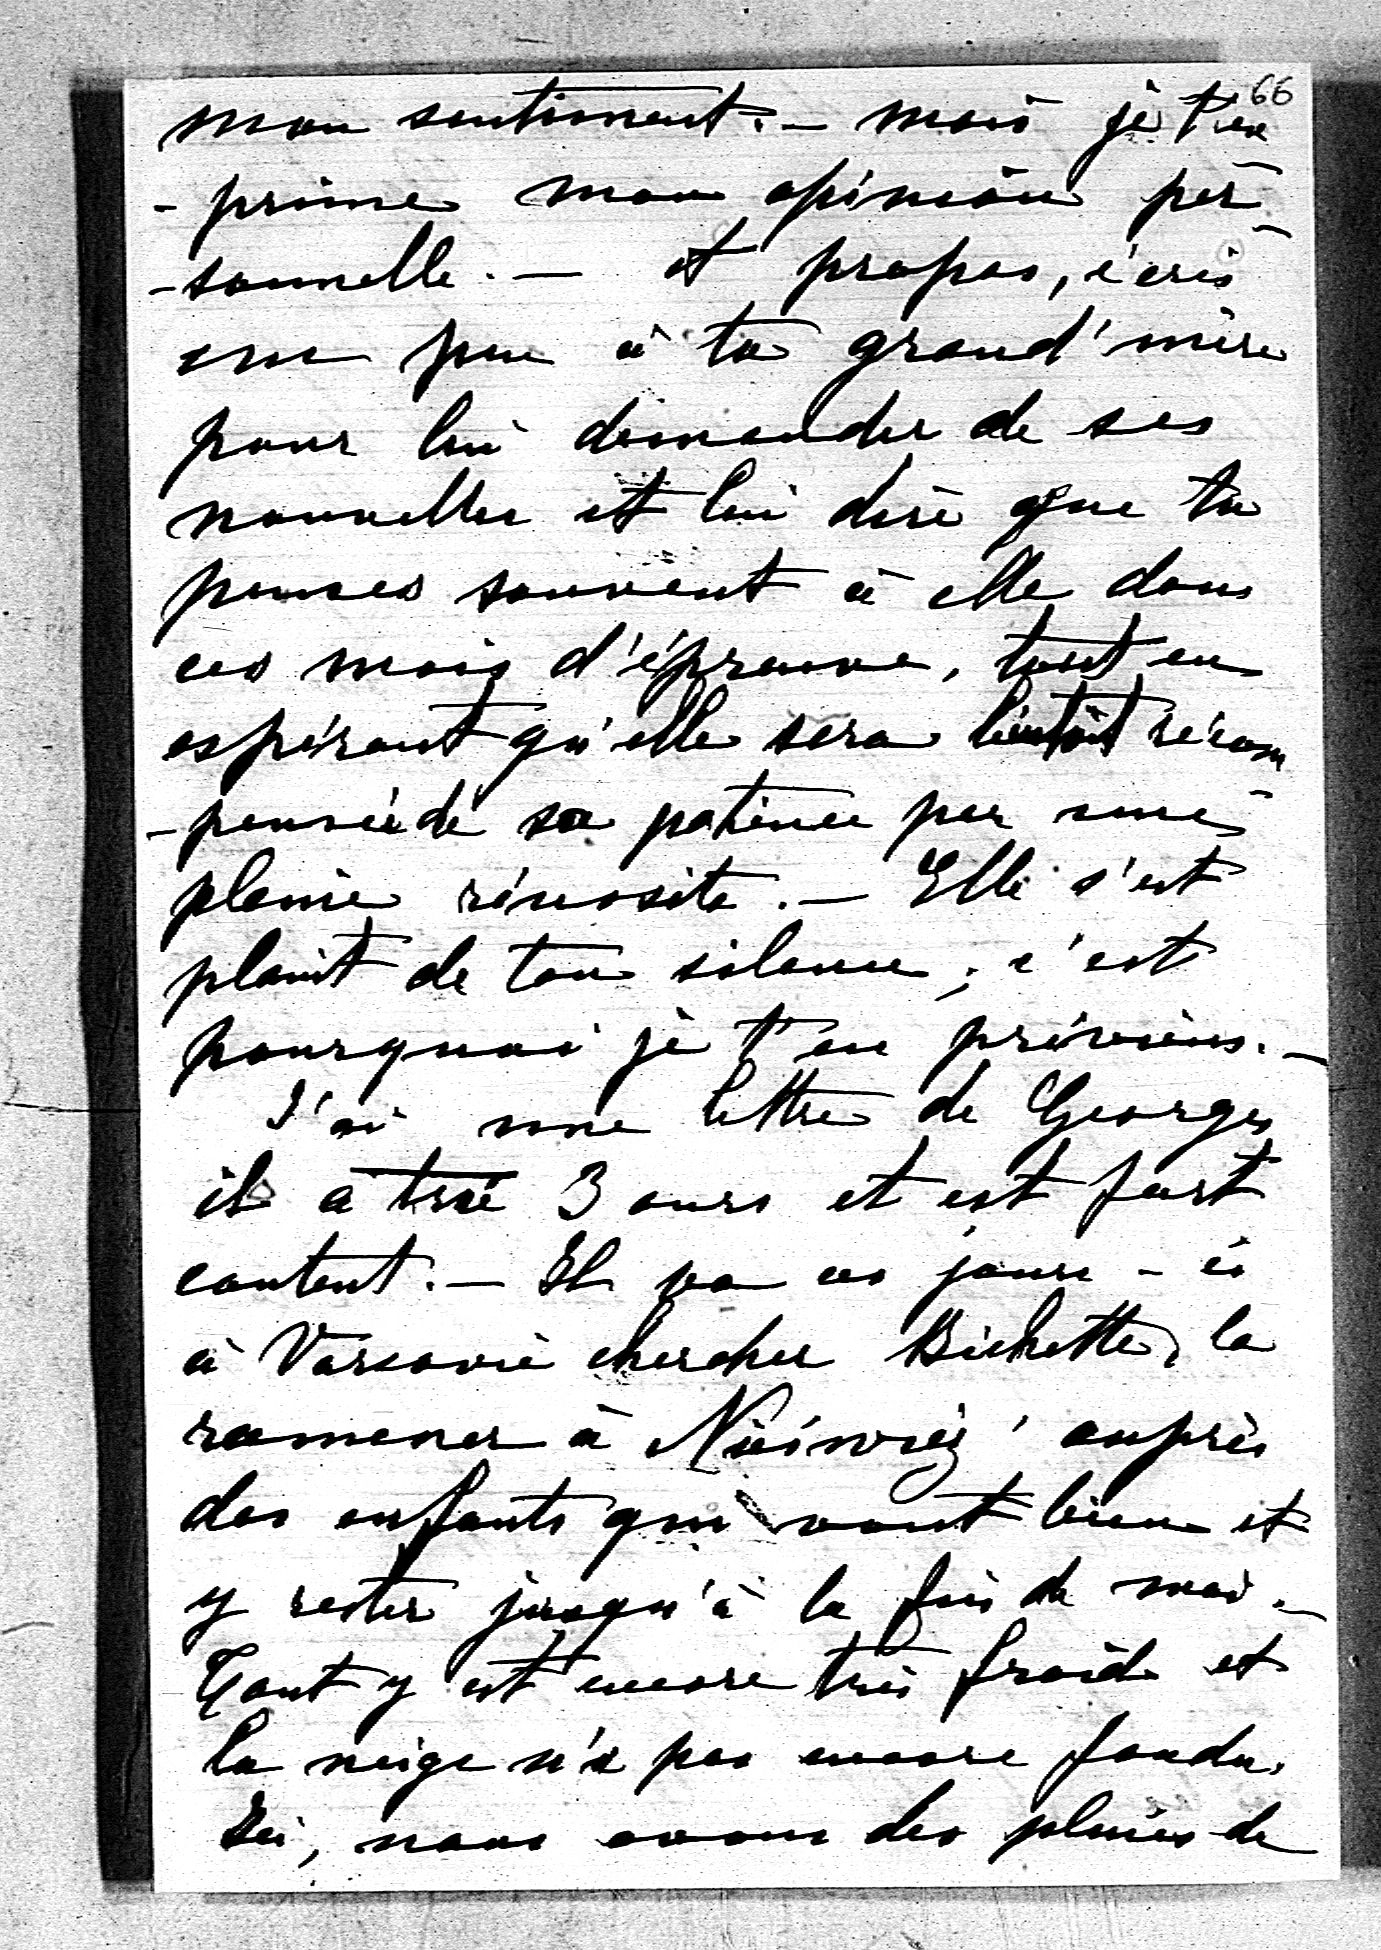 66
mon sentiment. — mais je t'ex
- prime mon opinion per
- sonnelle. — A propos, écris
un peu à ta grand'mère
pour lui demander de ses
nouvelles et lui dire que tu
penses souvent à elle dans
ces mois d'épreuve, tout en
espérant qu'elle sera bientôt récom
- pensée de sa patience par une
pleine réussite. — Elle s'est
plaint de ton silence, c'est
pourquoi je t'en préviens. —
J'ai une lettre de Georges
il a tué 3 ours et est fort
content. — Il va ces jours - ci
à Varsovie chercher Bichette, la
ramener à Nieśwież auprès
des enfants qui vont bien et
y rester jusqu'à la fin de mai. —
Tout y est encore très froid et
la neige n'a pas encore fondu.
Ici, nous avons des pluies de